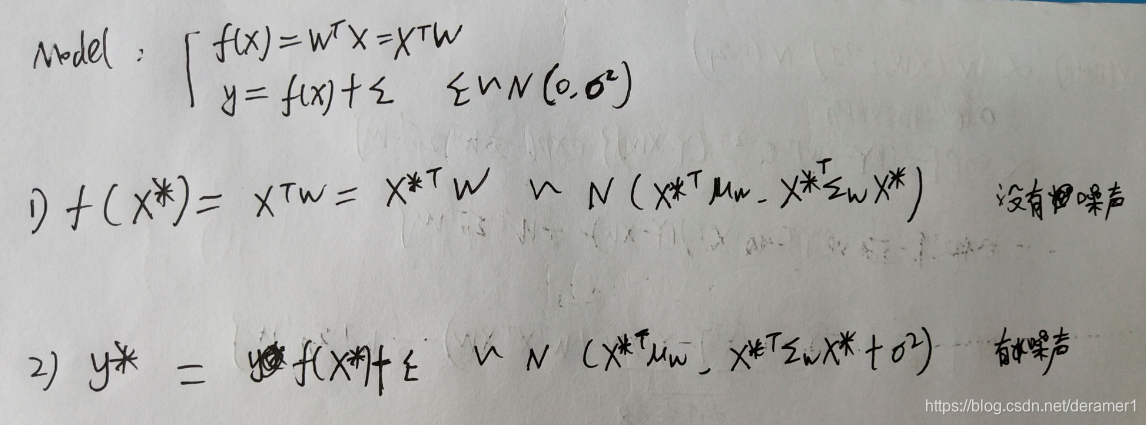 Model : { f(x) = W^T X = X^T W
y = f(x) + Σ Σ ~ N (0, σ²)
1) f(X*) = X^T W = X*^T W ~ N (X*^T μ_w - X*^T Σ_w X*) 没有噪声
2) y* = f(X*) + Σ ~ N (X*^T μ_w - X*^T Σ_w X* + σ²) 有噪声
https://blog.csdn.net/deramer1